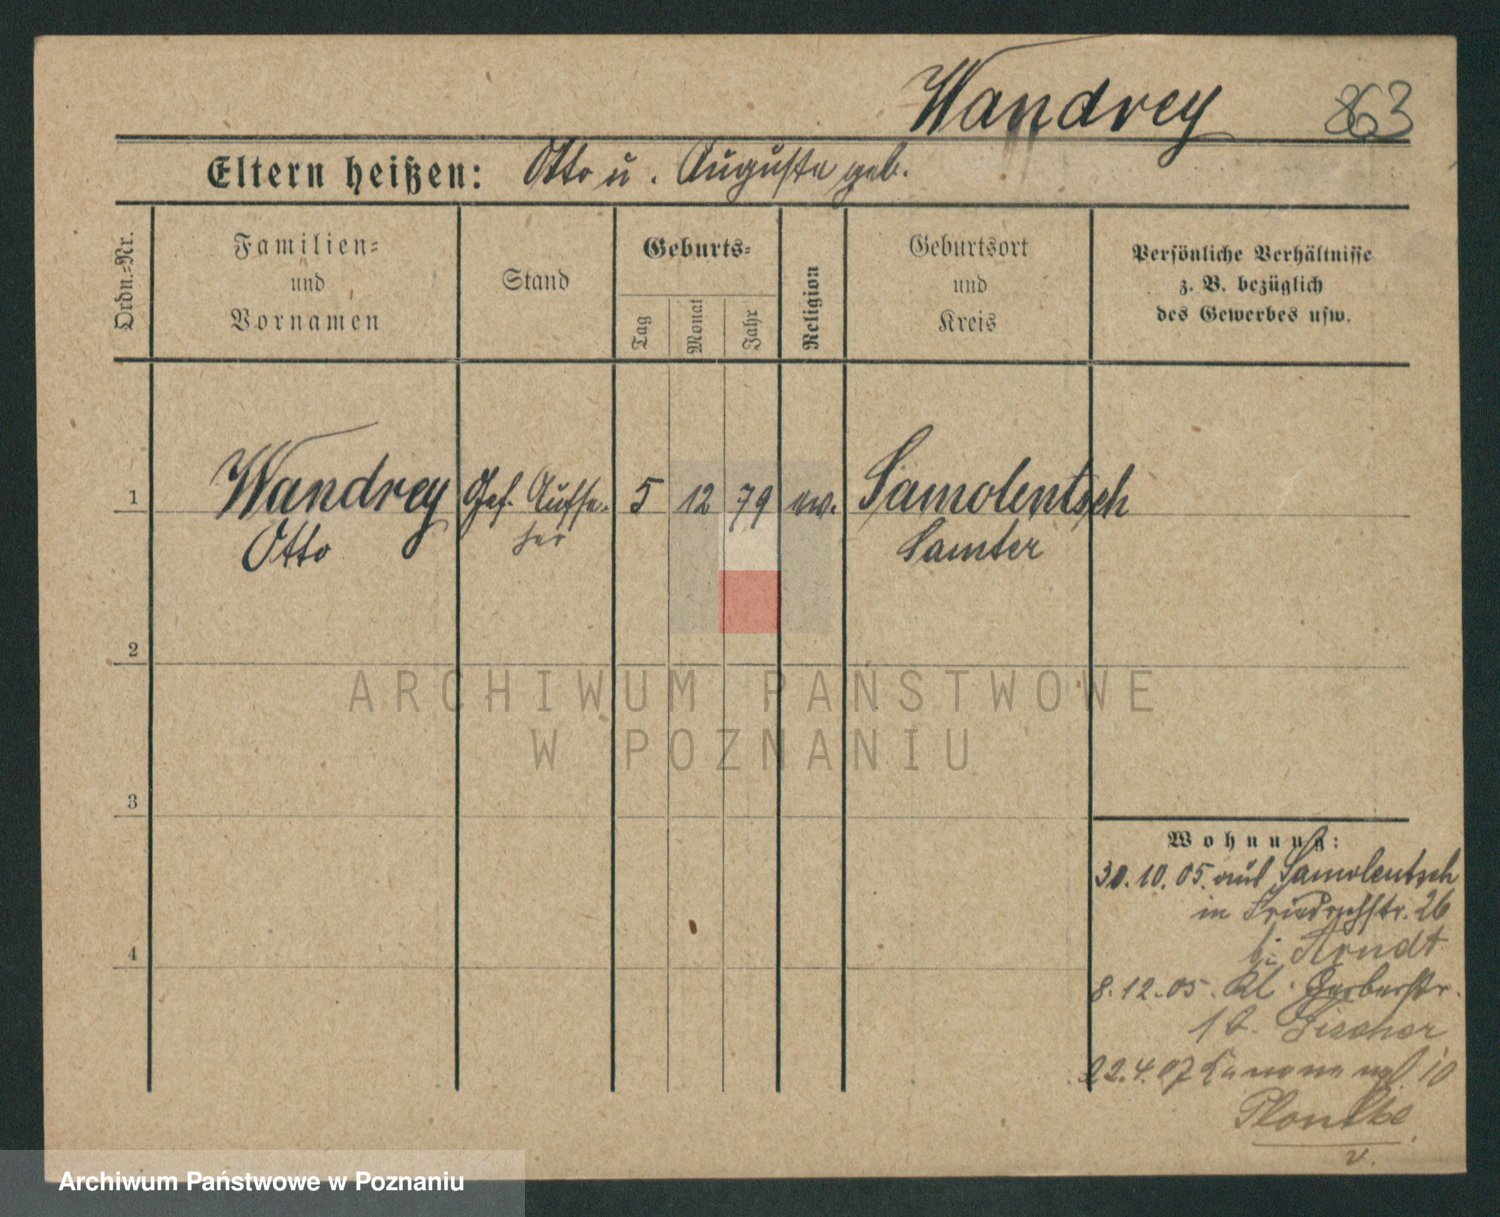 Wandrey 863
Eltern heißen: Otto u. Auguste geb.
Ordn.=Nr.
Familien=
und
Vornamen
Stand
Geburts=
Tag
Monat
Jahr
Religion
Geburtsort
und
Kreis
Persönliche Verhältnisse
z. B. bezüglich
des Gewerbes usw.
1 Wandrey Gef. Aufse- 5 12 79 ev. Samolentsch
Otto her Samter
2
3
4
ARCHIWUM PAŃSTWOWE
W POZNANIU
Wohnung:
30.10.05. aus Samolentsch
in Friedrichstr. 26
bei Arndt
8.12.05. Kl. Gerberstr.
Fischer
22.4.07 Kanonenpl. 10
v.
Archiwum Państwowe w Poznaniu